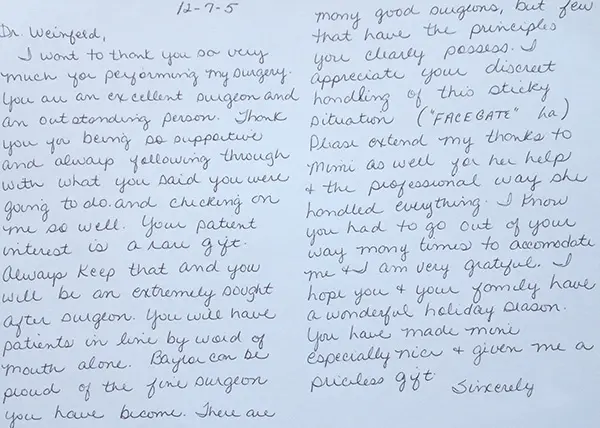 12-7-5
Dr. Weinfeld,
I want to thank you so very
much for performing my surgery.
You are an excellent surgeon and
an outstanding person. Thank
you for being so supportive
and always following through
with what you said you were
going to do and checking on
me so well. Your patient
interest is a rare gift.
Always keep that and you
will be an extremely sought
after surgeon. You will have
patients in line by word of
mouth alone. Baylor can be
proud of the fine surgeon
you have become. There are
many good surgeons, but few
that have the principles
you clearly possess. I
appreciate your discreet
handling of this sticky
situation ("FACEGATE" ha)
Please extend my thanks to
Mimi as well for her help
& the professional way she
handled everything. I know
you had to go out of your
way many times to accomodate
me & I am very grateful. I
hope you & your family have
a wonderful holiday season.
You have made mine
especially nice & given me a
priceless gift.
Sincerely